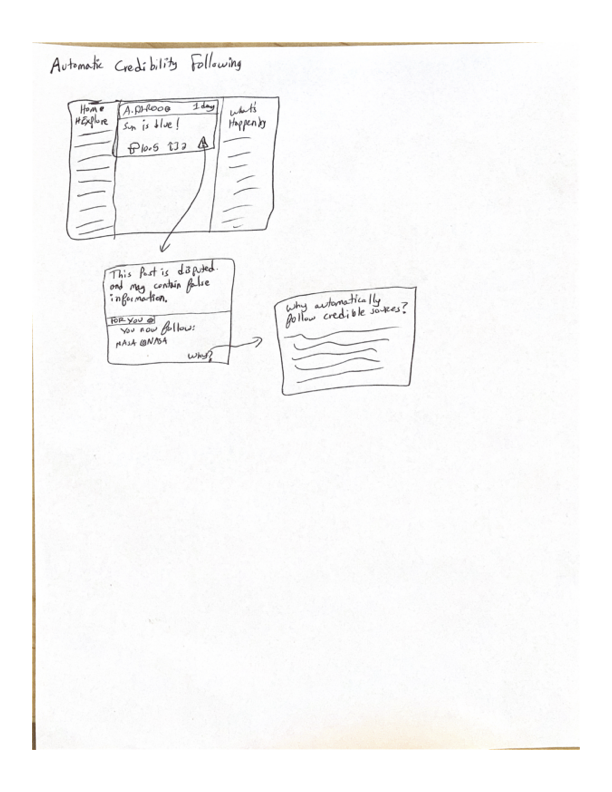 Automatic Credibility Following
Home
#Explore
1 day
Sun is blue!
What's
Happening
This Post is disputed
and may contain false
information.
FOR YOU
You now follow:
NASA @NASA
Why?
Why automatically
follow credible sources?